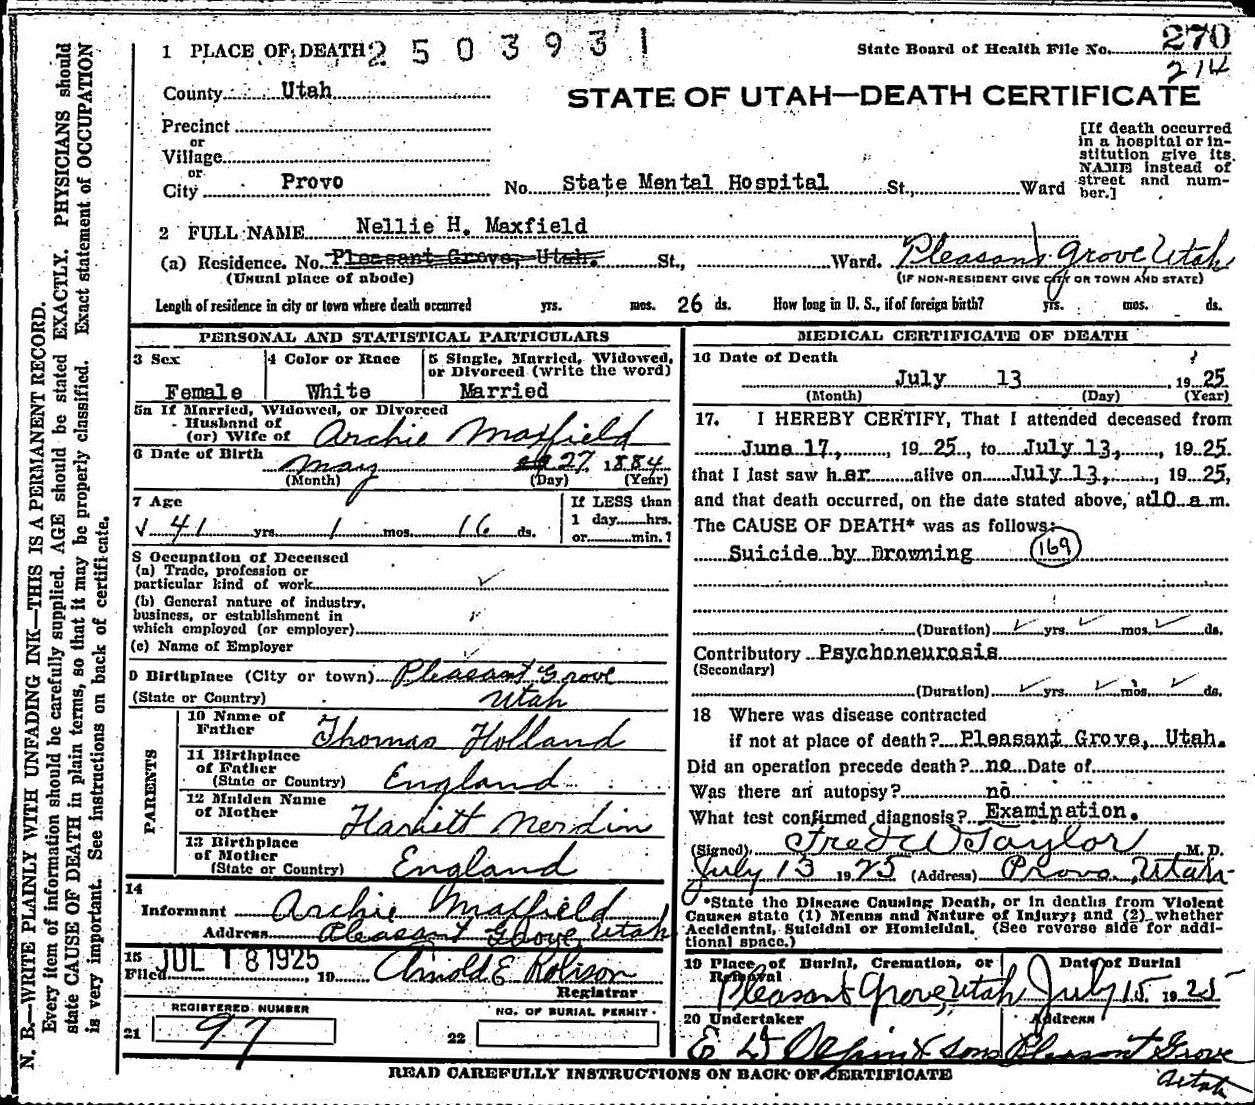 1 PLACE OF DEATH 2503931
State Board of Health File No. 270
214
County Utah
STATE OF UTAH—DEATH CERTIFICATE
Precinct
or
Village
or
City Provo No. State Mental Hospital St., Ward
[If death occurred
in a hospital or in-
stitution give its
NAME instead of
street and num-
ber.]
2 FULL NAME Nellie H. Maxfield
(a) Residence. No. Pleasant Grove, Utah. St., Ward. Pleasant Grove, Utah
(Usual place of abode) (IF NON-RESIDENT GIVE CITY OR TOWN AND STATE)
Length of residence in city or town where death occurred yrs. mos. 26 ds. How long in U. S., if of foreign birth? yrs. mos. ds.
PERSONAL AND STATISTICAL PARTICULARS
3 Sex
Female
4 Color or Race
White
5 Single, Married, Widowed,
or Divorced (write the word)
Married
5a If Married, Widowed, or Divorced
Husband of
(or) Wife of Archie Maxfield
6 Date of Birth
May 27 1884
(Month) (Day) (Year)
7 Age
41 yrs. 1 mos. 16 ds.
If LESS than
1 day hrs.
or min.?
8 Occupation of Deceased
(a) Trade, profession or
particular kind of work
(b) General nature of industry,
business, or establishment in
which employed (or employer)
(c) Name of Employer
9 Birthplace (City or town) Pleasant Grove
(State or Country) Utah
PARENTS
10 Name of
Father Thomas Holland
11 Birthplace
of Father
(State or Country) England
12 Maiden Name
of Mother Harriett Nerdin
13 Birthplace
of Mother
(State or Country) England
14
Informant Archie Maxfield
Address Pleasant Grove, Utah
15
Filed JUL 18 1925, 19 Arnold E Robison
Registrar
REGISTERED NUMBER
21 97
NO. OF BURIAL PERMIT
22
MEDICAL CERTIFICATE OF DEATH
16 Date of Death
July 13 , 19 25
(Month) (Day) (Year)
17. I HEREBY CERTIFY, That I attended deceased from
June 17, , 19 25, to July 13, , 19 25,
that I last saw her alive on July 13, , 19 25,
and that death occurred, on the date stated above, at 10 a.m.
The CAUSE OF DEATH* was as follows:
Suicide by Drowning 169
(Duration) yrs. mos. ds.
Contributory Psychoneurosis
(Secondary)
(Duration) yrs. mos. ds.
18 Where was disease contracted
if not at place of death? Pleasant Grove, Utah.
Did an operation precede death? no Date of
Was there an autopsy? no
What test confirmed diagnosis? Examination.
(Signed) Fred W Taylor M. D.
July 13 1925 (Address) Provo, Utah
*State the Disease Causing Death, or in deaths from Violent
Causes state (1) Means and Nature of Injury; and (2) whether
Accidental, Suicidal or Homicidal. (See reverse side for addi-
tional space.)
19 Place of Burial, Cremation, or Date of Burial
Removal
Pleasant Grove, Utah July 15 1925
20 Undertaker Address
& Sons Pleasant Grove
Utah
READ CAREFULLY INSTRUCTIONS ON BACK OF CERTIFICATE
N. B.—WRITE PLAINLY WITH UNFADING INK—THIS IS A PERMANENT RECORD.
Every item of information should be carefully supplied. AGE should be stated EXACTLY. PHYSICIANS should
state CAUSE OF DEATH in plain terms, so that it may be properly classified. Exact statement of OCCUPATION
is very important. See instructions on back of certificate.